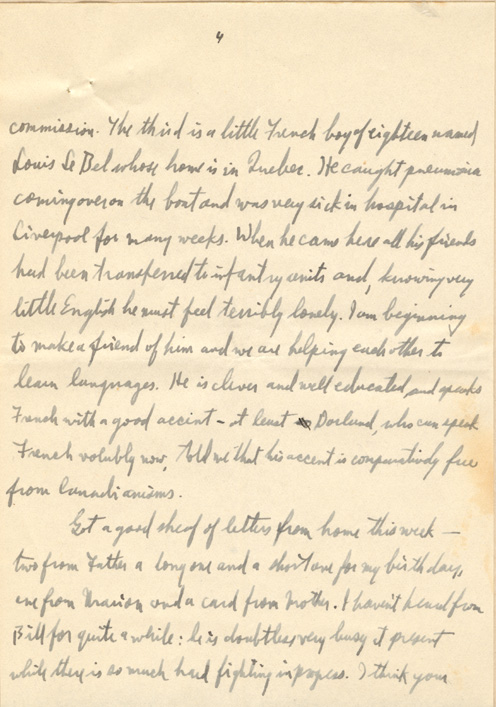 4
commission. The third is a little French boy of eighteen named
Louis Le Bel whose home is in Quebec. He caught pneumonia
coming over on the boat and was very sick in hospital in
Liverpool for many weeks. When he came here all his friends
had been transferred to infantry units and, knowing very
little English he must feel terribly lonely. I am beginning
to make a friend of him and we are helping each other to
learn languages. He is clever and well educated, and speaks
French with a good accent – at least Dorland, who can speak
French volubly now, told me that his accent is comparatively free
from Canadianisms.
Got a good sheaf of letters from home this week –
two from Father a long one and a short one for my birthday,
one from Marion and a card from Mother. I haven't heard from
Bill for quite a while: he is doubtless very busy at present
while there is so much hard fighting in progress. I think your